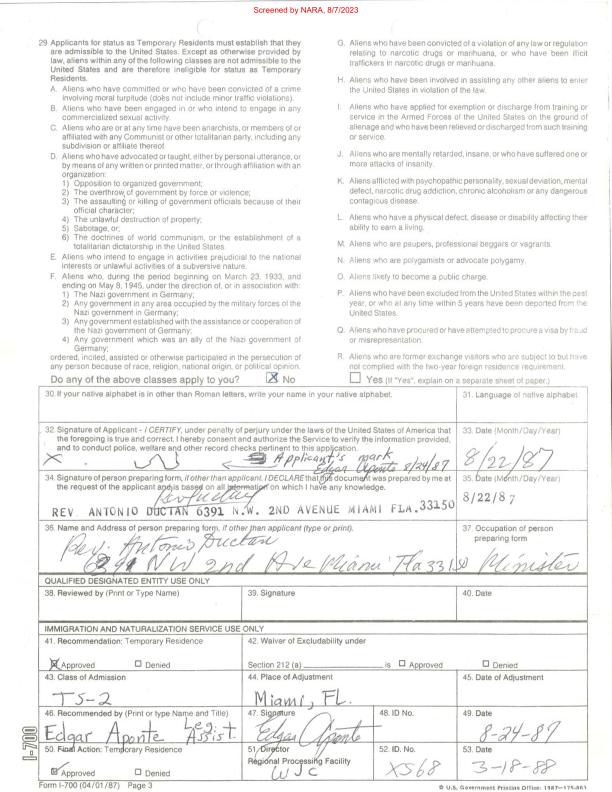 Screened by NARA, 8/7/2023
29 Applicants for status as Temporary Residents must establish that they
are admissible to the United States. Except as otherwise provided by
law, aliens within any of the following classes are not admissible to the
United States and are therefore ineligible for status as Temporary
Residents.
A. Aliens who have committed or who have been convicted of a crime
involving moral turpitude (does not include minor traffic violations).
B. Aliens who have been engaged in or who intend to engage in any
commercialized sexual activity.
C. Aliens who are or at any time have been anarchists, or members of or
affiliated with any Communist or other totalitarian party, including any
subdivision or affiliate thereof.
D. Aliens who have advocated or taught, either by personal utterance, or
by means of any written or printed matter, or through affiliation with an
organization:
1) Opposition to organized government;
2) The overthrow of government by force or violence;
3) The assaulting or killing of government officials because of their
official character;
4) The unlawful destruction of property;
5) Sabotage, or;
6) The doctrines of world communism, or the establishment of a
totalitarian dictatorship in the United States.
E. Aliens who intend to engage in activities prejudicial to the national
interests or unlawful activities of a subversive nature.
F. Aliens who, during the period beginning on March 23, 1933, and
ending on May 8, 1945, under the direction of, or in association with:
1) The Nazi government in Germany;
2) Any government in any area occupied by the military forces of the
Nazi government in Germany;
3) Any government established with the assistance or cooperation of
the Nazi government of Germany;
4) Any government which was an ally of the Nazi government of
Germany;
ordered, incited, assisted or otherwise participated in the persecution of
any person because of race, religion, national origin, or political opinion.
G. Aliens who have been convicted of a violation of any law or regulation
relating to narcotic drugs or marihuana, or who have been illicit
traffickers in narcotic drugs or marihuana.
H. Aliens who have been involved in assisting any other aliens to enter
the United States in violation of the law.
I. Aliens who have applied for exemption or discharge from training or
service in the Armed Forces of the United States on the ground of
alienage and who have been relieved or discharged from such training
or service.
J. Aliens who are mentally retarded, insane, or who have suffered one or
more attacks of insanity.
K. Aliens afflicted with psychopathic personality, sexual deviation, mental
defect, narcotic drug addiction, chronic alcoholism or any dangerous
contagious disease.
L. Aliens who have a physical defect, disease or disability affecting their
ability to earn a living.
M. Aliens who are paupers, professional beggars or vagrants.
N. Aliens who are polygamists or advocate polygamy.
O. Aliens likely to become a public charge.
P. Aliens who have been excluded from the United States within the past
year, or who at any time within 5 years have been deported from the
United States.
Q. Aliens who have procured or have attempted to procure a visa by fraud
or misrepresentation.
R. Aliens who are former exchange visitors who are subject to but have
not complied with the two-year foreign residence requirement.
Do any of the above classes apply to you? X No Yes (If "Yes", explain on a separate sheet of paper.)
30. If your native alphabet is in other than Roman letters, write your name in your native alphabet.
31. Language of native alphabet
32. Signature of Applicant - I CERTIFY, under penalty of perjury under the laws of the United States of America that
the foregoing is true and correct. I hereby consent and authorize the Service to verify the information provided,
and to conduct police, welfare and other record checks pertinent to this application.
X Applicant's mark
Edgar Aponte 8/24/87
33. Date (Month/Day/Year)
8/22/87
34. Signature of person preparing form, if other than applicant. I DECLARE that this document was prepared by me at
the request of the applicant and is based on all information on which I have any knowledge.
REV. ANTONIO DUCTAN 6391 N.W. 2ND AVENUE MIAMI FLA. 33150
35. Date (Month/Day/Year)
8/22/87
36. Name and Address of person preparing form, if other than applicant (type or print).
Rev. Antonio Ductan
6391 NW 2nd Ave Miami Fla 33150
37. Occupation of person
preparing form
Minister
QUALIFIED DESIGNATED ENTITY USE ONLY
38. Reviewed by (Print or Type Name)
39. Signature
40. Date
IMMIGRATION AND NATURALIZATION SERVICE USE ONLY
41. Recommendation: Temporary Residence
X Approved Denied
42. Waiver of Excludability under
Section 212 (a) is Approved Denied
43. Class of Admission
TS-2
44. Place of Adjustment
Miami, FL.
45. Date of Adjustment
46. Recommended by (Print or type Name and Title)
Edgar Aponte Legit. Assist.
47. Signature
Edgar Aponte
48. ID No.
49. Date
8-24-87
50. Final Action: Temporary Residence
Approved Denied
51. Director
Regional Processing Facility
WJC
52. ID. No.
X568
53. Date
3-18-88
I-700
Form I-700 (04/01/87) Page 3
☆ U.S. Government Printing Office: 1987-175-865